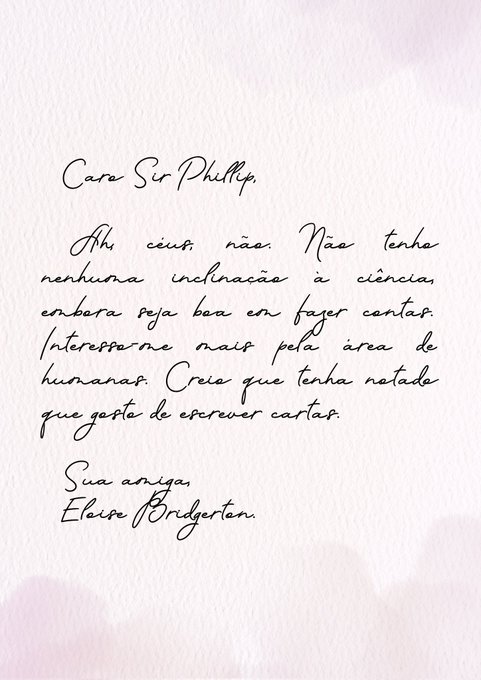 Caro Sir Phillip,
Ah, céus, não. Não tenho
nenhuma inclinação à ciência,
embora seja boa em fazer contas.
Interesso-me mais pela área de
humanas. Creio que tenha notado
que gosto de escrever cartas.
Sua amiga,
Eloise Bridgerton.